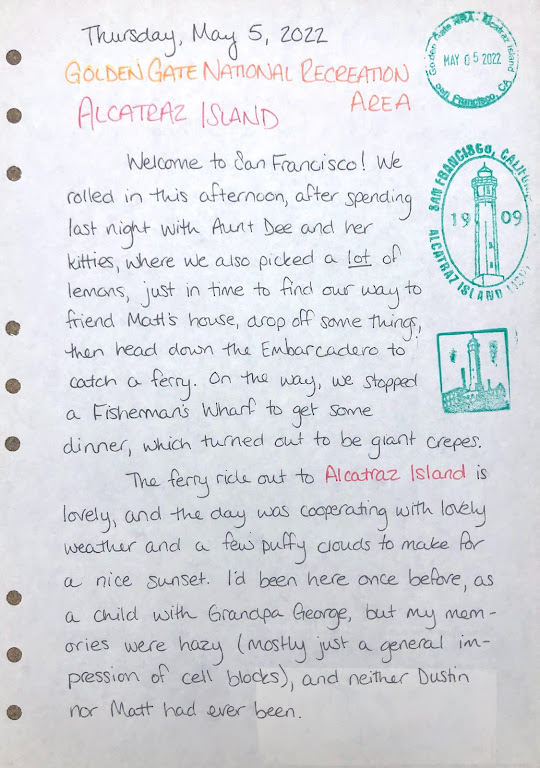 Thursday, May 5, 2022
GOLDEN GATE NATIONAL RECREATION
AREA
ALCATRAZ ISLAND
Golden Gate NRA, Alcatraz Island
MAY 05 2022
San Francisco, CA
Welcome to San Francisco! We
rolled in this afternoon, after spending
last night with Aunt Dee and her
kitties, where we also picked a lot of
lemons, just in time to find our way to
friend Matt's house, drop off some things,
then head down the Embarcadero to
catch a ferry. On the way, we stopped
a Fisherman's Wharf to get some
dinner, which turned out to be giant crepes.
SAN FRANCISCO,
1909
ALCATRAZ ISLAND
The ferry ride out to Alcatraz Island is
lovely, and the day was cooperating with lovely
weather and a few puffy clouds to make for
a nice sunset. I'd been here once before, as
a child with Grandpa George, but my mem-
ories were hazy (mostly just a general im-
pression of cell blocks), and neither Dustin
nor Matt had ever been.